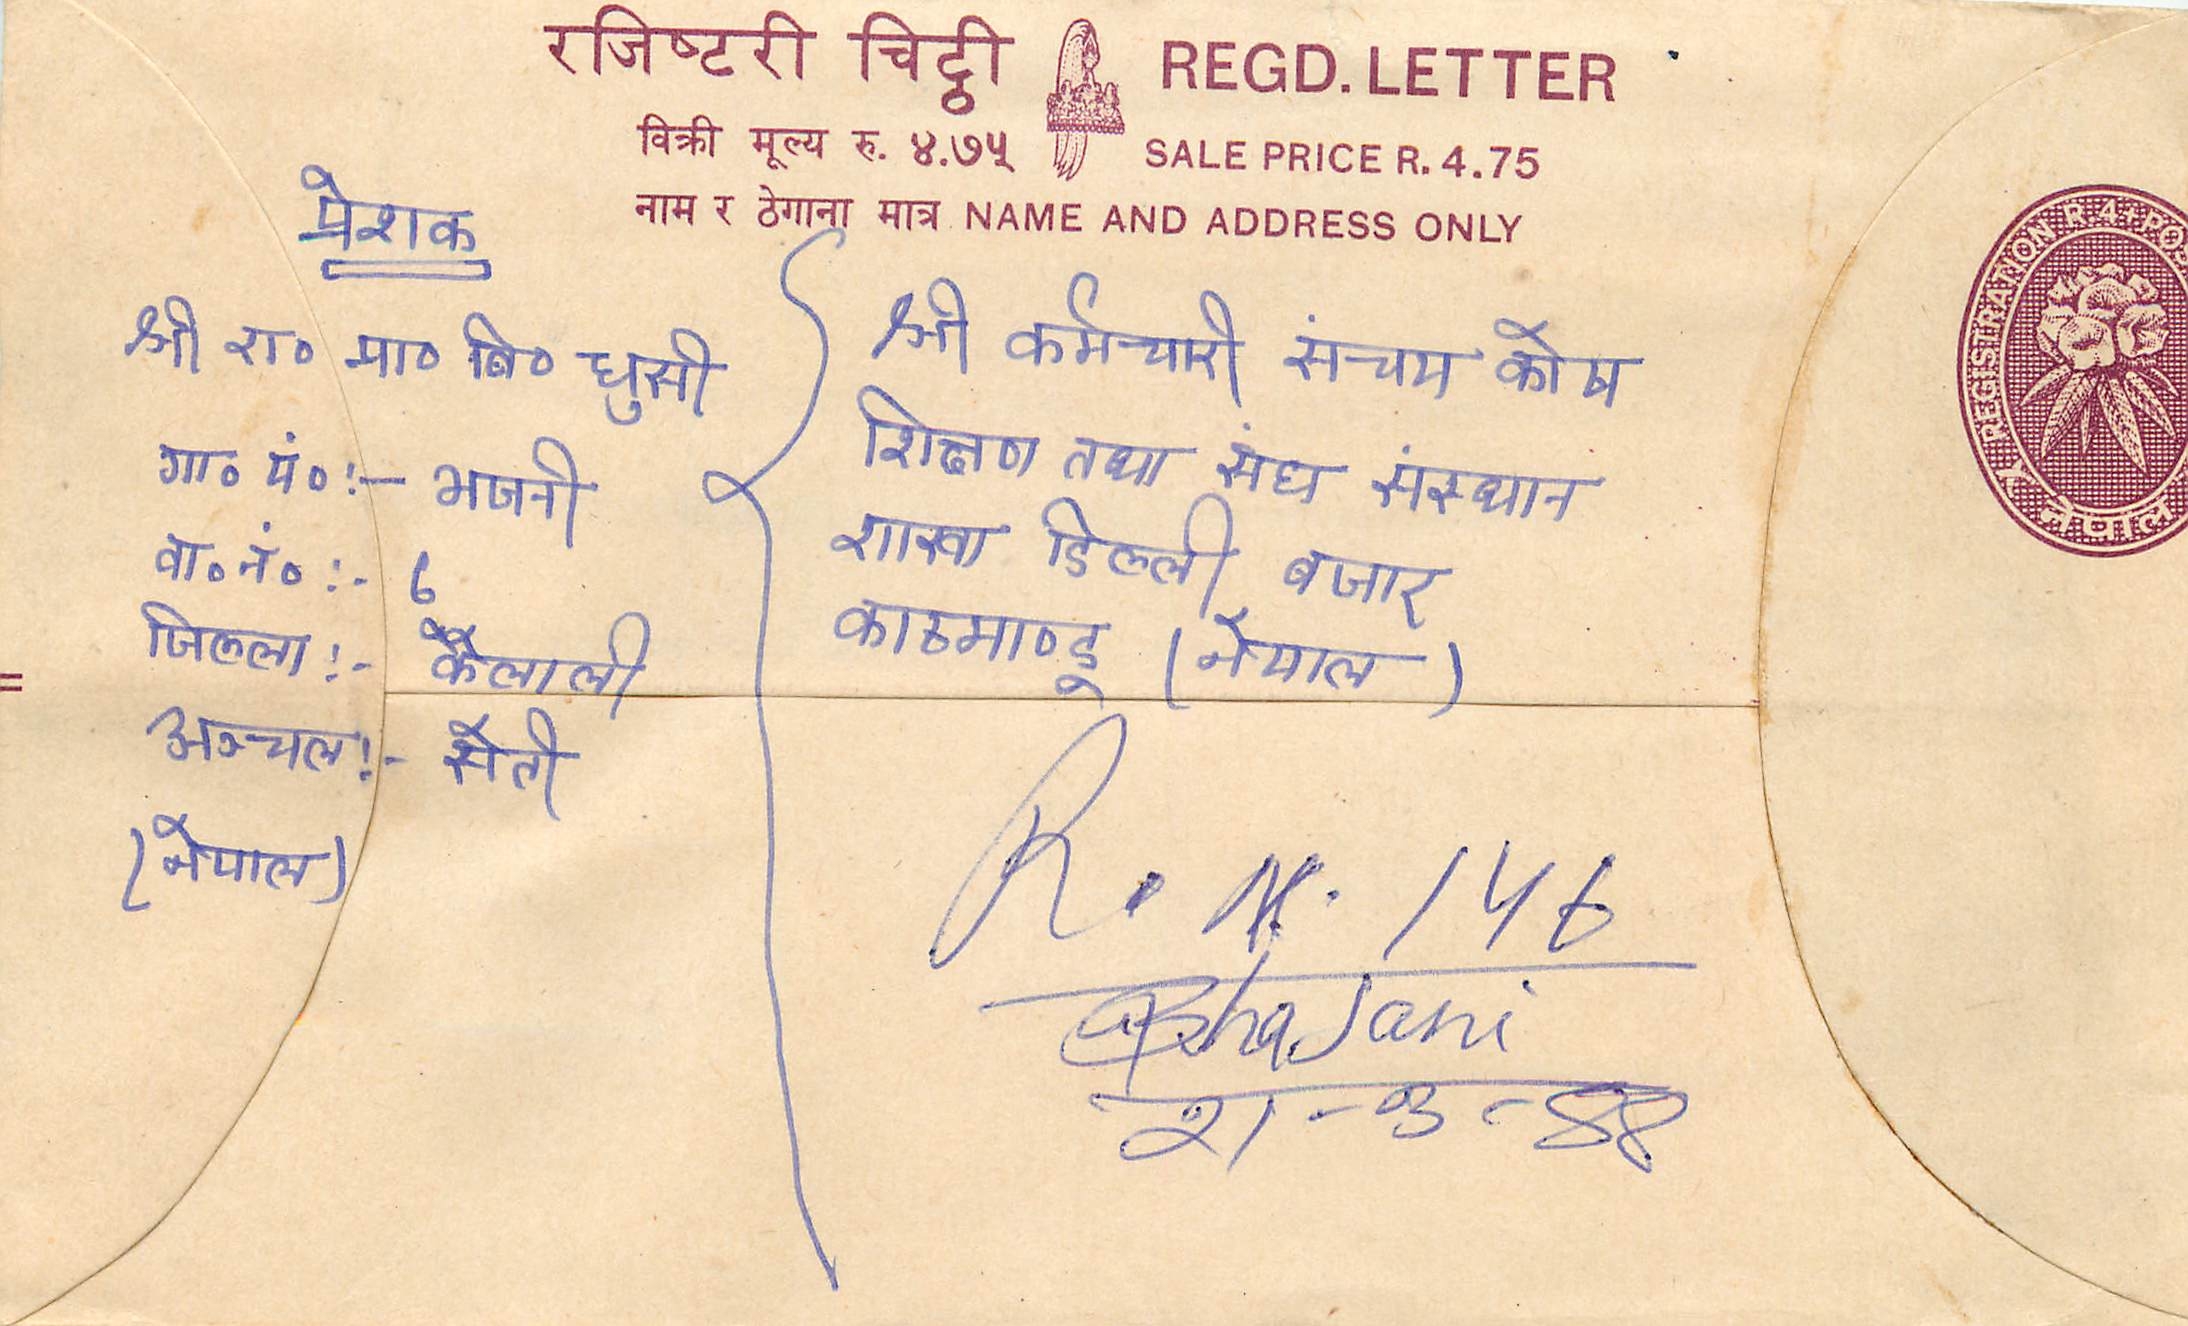 रजिष्टरी चिट्ठी REGD. LETTER
विक्री मूल्य रु. ४.७५ SALE PRICE R. 4.75
नाम र ठेगाना मात्र NAME AND ADDRESS ONLY
REGISTRATION R.4+PO
नेपाल
प्रेशक
श्री रा० प्रा० बि० घुसी
गा० पं० :- भजनी
वा० नं० :- ६
जिल्ला :- कैलाली
अञ्चल :- सेती
(नेपाल)
श्री कर्मचारी संचय कोष
शिक्षण तथा संघ संस्थान
शाखा डिल्ली बजार
काठमाण्डू (नेपाल)
R. N. 146
Bhajani
21-3-88